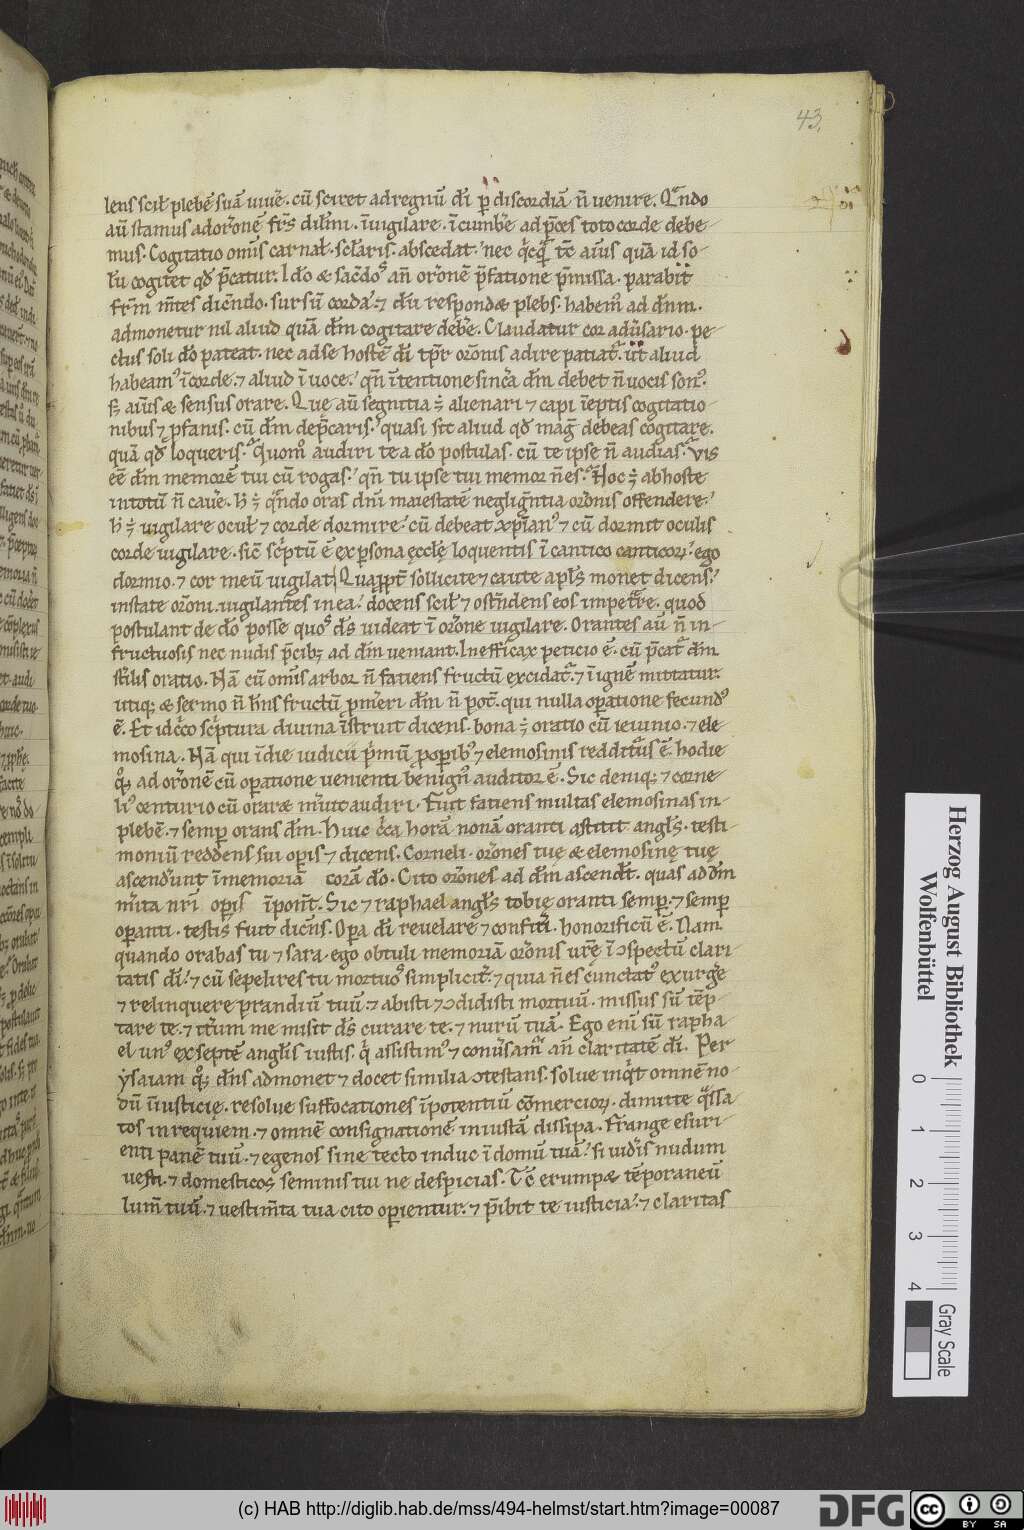 43.
lens scił plebē suā uiuē. cū sciret ad regnū dī p̱ discordiā n̄ uenire. Qn̄do
aū stamus ad orōnē frs̄ dilm̄i. īuigilare. īcumbe ad p̄ces toto corde debe-
mus. Cogitatio om̄is carnał. sclaris. abscedat. nec q̇cq̇ tc̄ aīus quā id so-
lū cogitet qđ p̄catur. Ido & sacdos an̄ orōnē p̄fatione p̄missa. parabit
frm̄ m̄tes dicn̄do. sursū corda. ⁊ dū respondæ plebs. habem' ad dn̄m.
admonetur nil aliud quā dm̄ cogitare debe. Claudatur cor adūsario. pe-
ctus soli do pateat. nec ad se hostē dī tpr ōronis adire patiat. ut aliud
habeam' ī corde. ⁊ aliud ī uoce. qn̄ ītentione sinca dm̄ debet n̄ uocis son'.
s; aīus & sensus orare. Que aū segnitia ÷ alienari ⁊ capi īeptis cogitatio-
nibus ⁊ pfanis. cū dm̄ dep̄caris. quasi sit aliud qđ mag̈ debeas cogitare.
quā qđ loqueris. Quom̊ audiri te a do postulas. cū te ipse n̄ audias. Vis
ēē dm̄ memorē tui cū rogas. qn̄ tu ipse tui memor n̄ es. Hoc ÷ ab hoste
in totū n̄ caue. h ÷ qn̄do oras dni maiestatē neglign̄tia orōnis offendere.
h ÷ uigilare ocuł ⁊ corde dormire. cū debeat xp̄ian' ⁊ cū dormit oculis
corde uigilare. sic scptū ē ex psona ęcclę loquentis ī cantico canticoꝝ. ego
dormio. ⁊ cor meū uigilat. Quapp̱t sollicite ⁊ caute apłs monet dicens.
instate orōni uigilantes in ea. docens scił ⁊ ostn̄dens eos impetre. quod
postulant de do posse quos ds uideat ī orōne uigilare. Orantes aū n̄ in-
fructuosis nec nudis p̄cib; ad dm̄ ueniant. Inefficax peticio ē. cū p̄cat dm̄
sterilis oratio. Nā cū om̄is arbor n̄ fatiens fructū excidat. ⁊ ī ignē mittatur.
utiq; & sermo n̄ hn̄s fructū pmeri dm̄ n̄ pot. qui nulla opatione fecund'
ē. Et idcco scptura diuina īstruit dicens. bona ÷ oratio cū ieiunio. ⁊ ele-
mosina. Nā qui ī die iudicii pmiū p opib' ⁊ elemosinis redditus ē. hodie
qq; ad orōnē cū opatione uenienti benign' auditor ē. Sic deniq; ⁊ corne-
li' centurio cū oraræ mruit audiri. Fuit fatiens multas elemosinas in-
plebē. ⁊ semp orans dm̄. Huic cca horā nonā oranti astitit angls. testi-
moniū reddens sui opis ⁊ dicens. Corneli. orōnes tuę & elemosinę tuę
ascenderunt ī memoriā corā do. Cito orōnes ad dm̄ ascendt. quas ad dm̄
mrita nri opis īpont. Sic ⁊ raphael angls tobię oranti semp. ⁊ semp
opanti. testis fuit dicns. Opa dī reuelare ⁊ confiti. honorificū ē. Nam
quando orabas tu ⁊ sara. ego obtuli memoriā orōnis urę ī ɔspectū clari-
tatis dī. ⁊ cū sepelires tu mortuos simplicit. ⁊ quia n̄ es cunctat' exurge
⁊ relinquere prandiū tuū. ⁊ abisti ⁊ ɔdidisti mortuū. missus sū tēp-
tare te. ⁊ itrum me misit ds curare te. ⁊ nurū tuā. Ego eni sū rapha-
el un' ex septē anglis iustis. q̇ assistim' ⁊ conūsam' an̄ claritatē dī. Per
ẏsaiam qq; dn̄s admonet ⁊ docet similia ɔtestans. solue inqt omnē no-
dū īiusticię. resolue suffocationes īpotentiū cōmercioꝝ. dimitte qssa-
tos in requiem. ⁊ omnē consignationē iniustā dissipa. Frange esuri-
enti panē tuū. ⁊ egenos sine tecto induc ī domū tuā. si uidis nudum
uesti. ⁊ domesticos seminis tui ne despicias. Tc̄ erumpæ tēporaneū
lum̄ tuū. ⁊ uestim̄ta tua cito opientur. ⁊ p̄ibit te iusticia. ⁊ claritas
Herzog August Bibliothek
Wolfenbüttel
0
1
2
3
4
Gray Scale
(c) HAB http://diglib.hab.de/mss/494-helmst/start.htm?image=00087
DFG
cc
BY SA